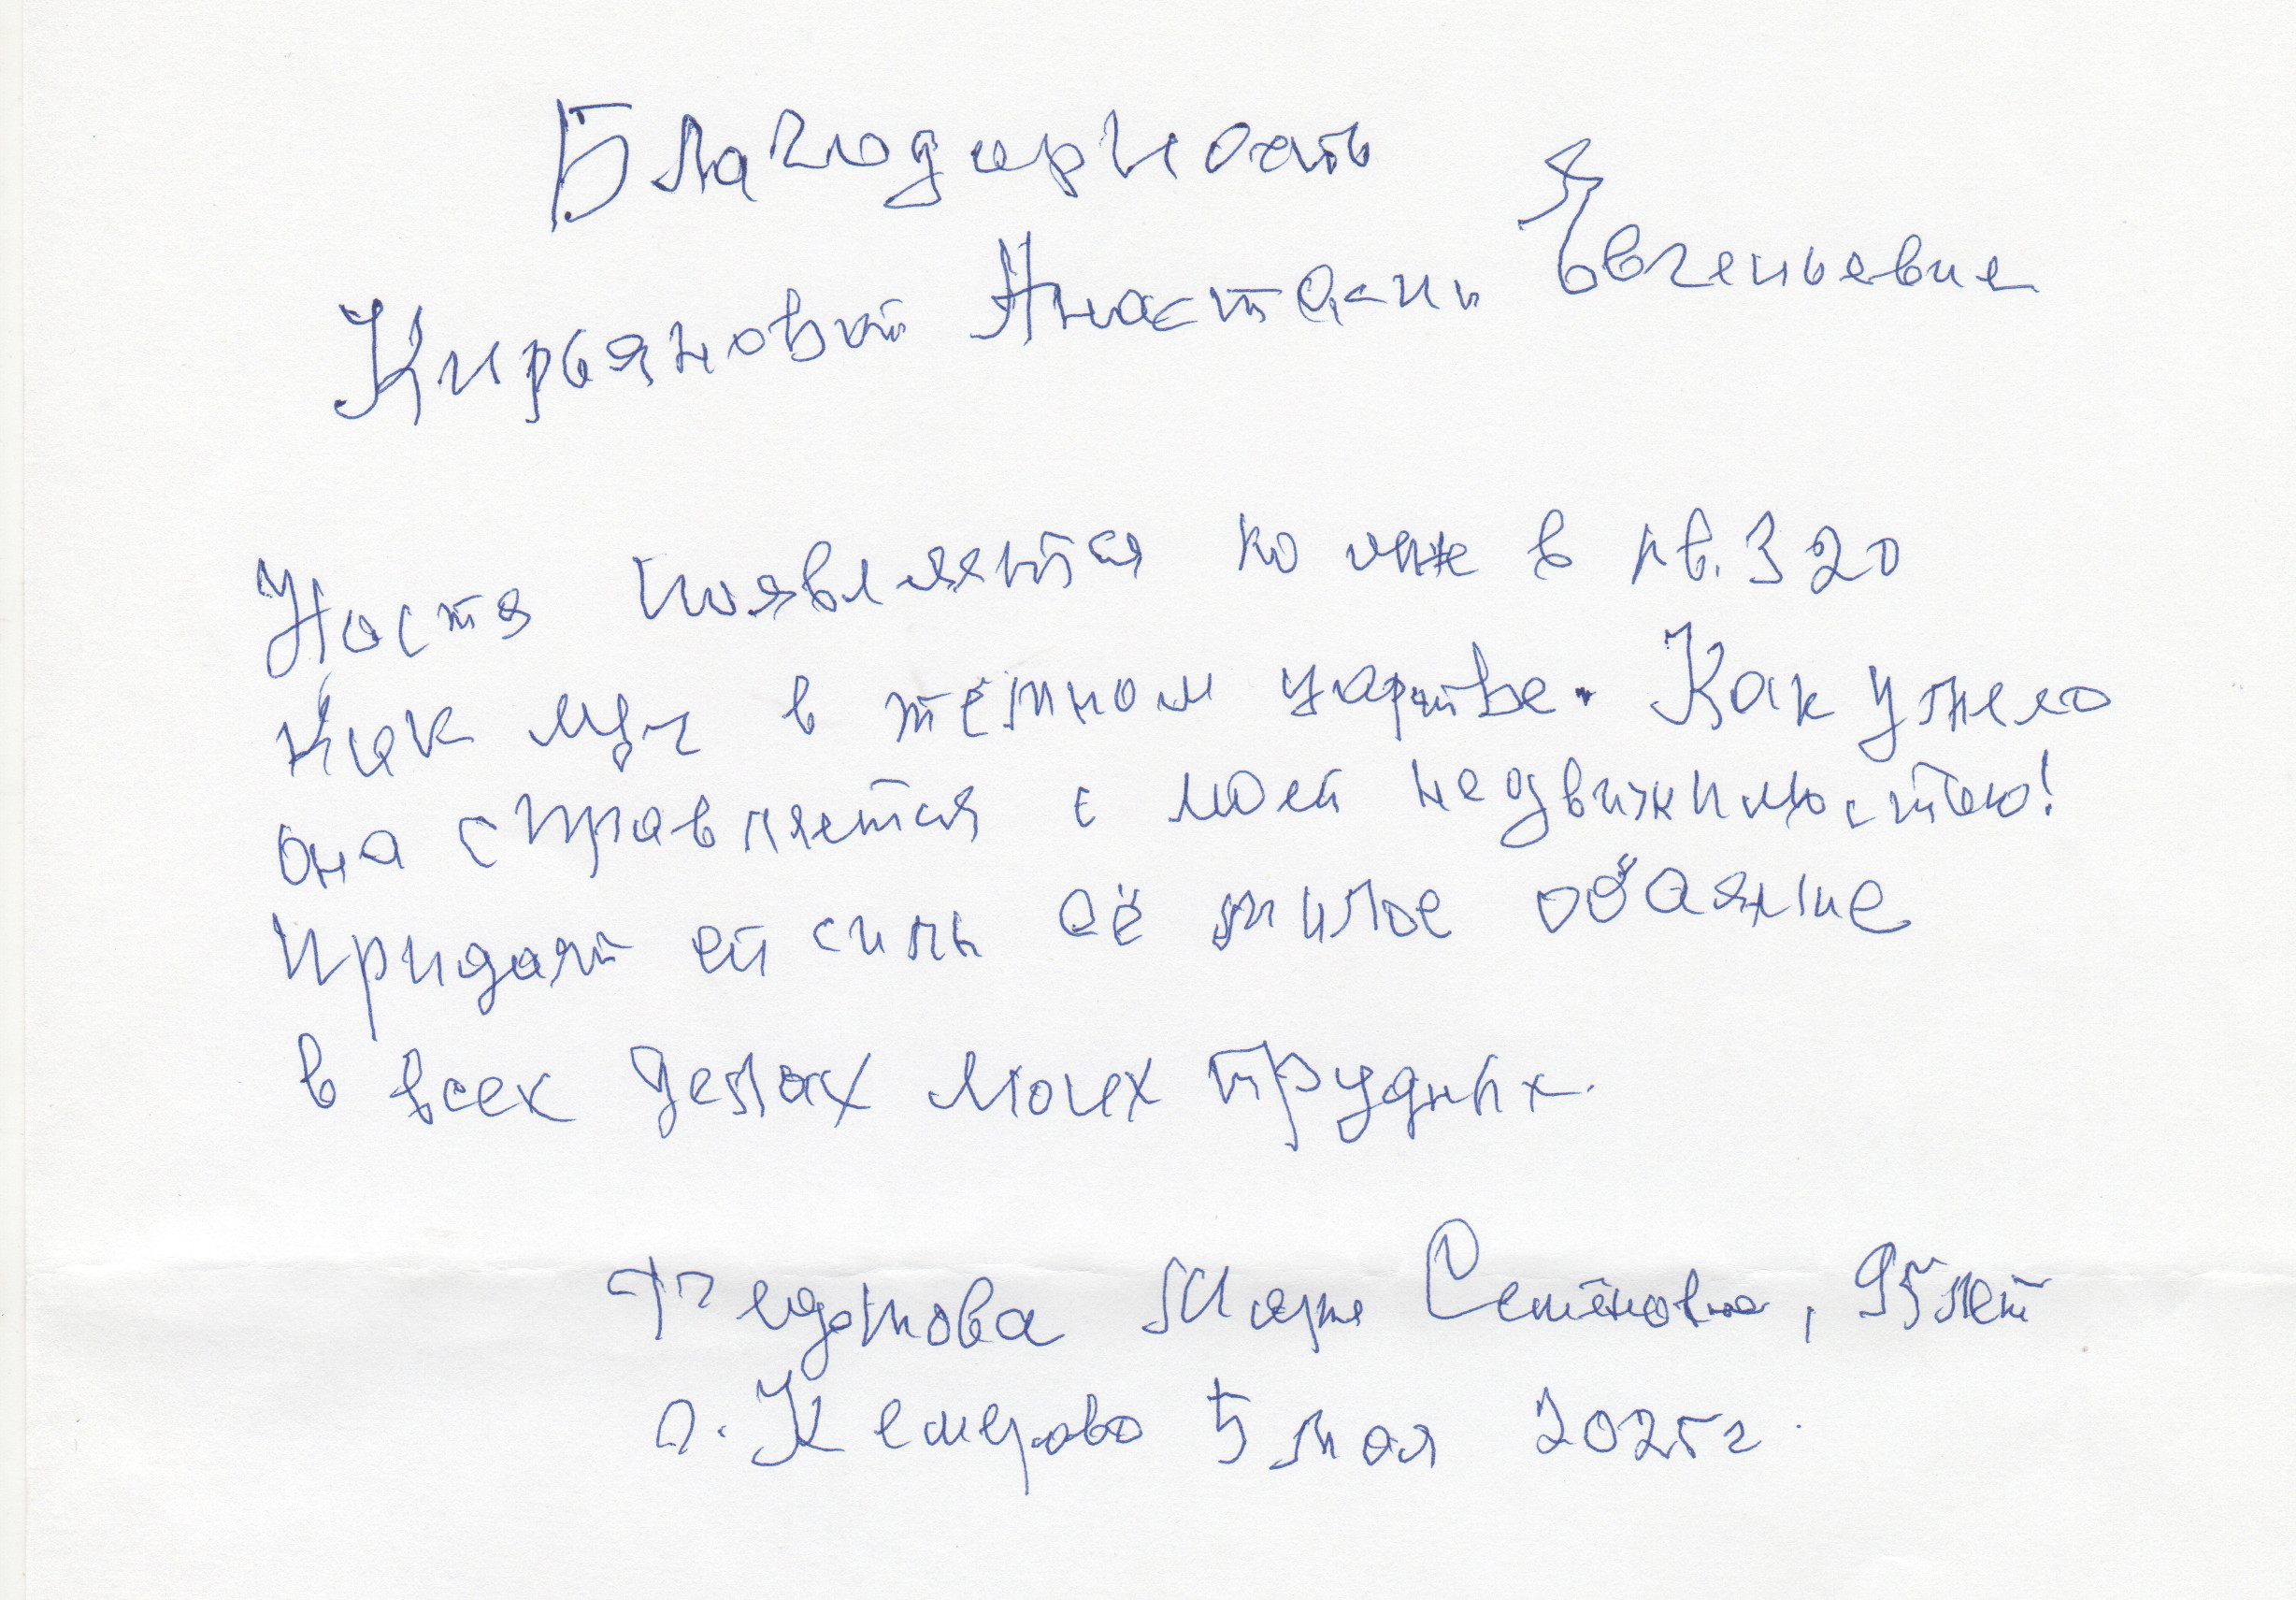 Благодарность
Кирьяновой Анастасии Евгеньевне
Настя появляется ко мне в кв. 320
как луч в тёмном царстве. Как умело
она справляется с моей недвижимостью!
Придаёт ей силы её милое обаяние
в всех делах моих трудных.
Федотова Мария Семёновна, 95 лет
г. Кемерово 5 мая 2025 г.